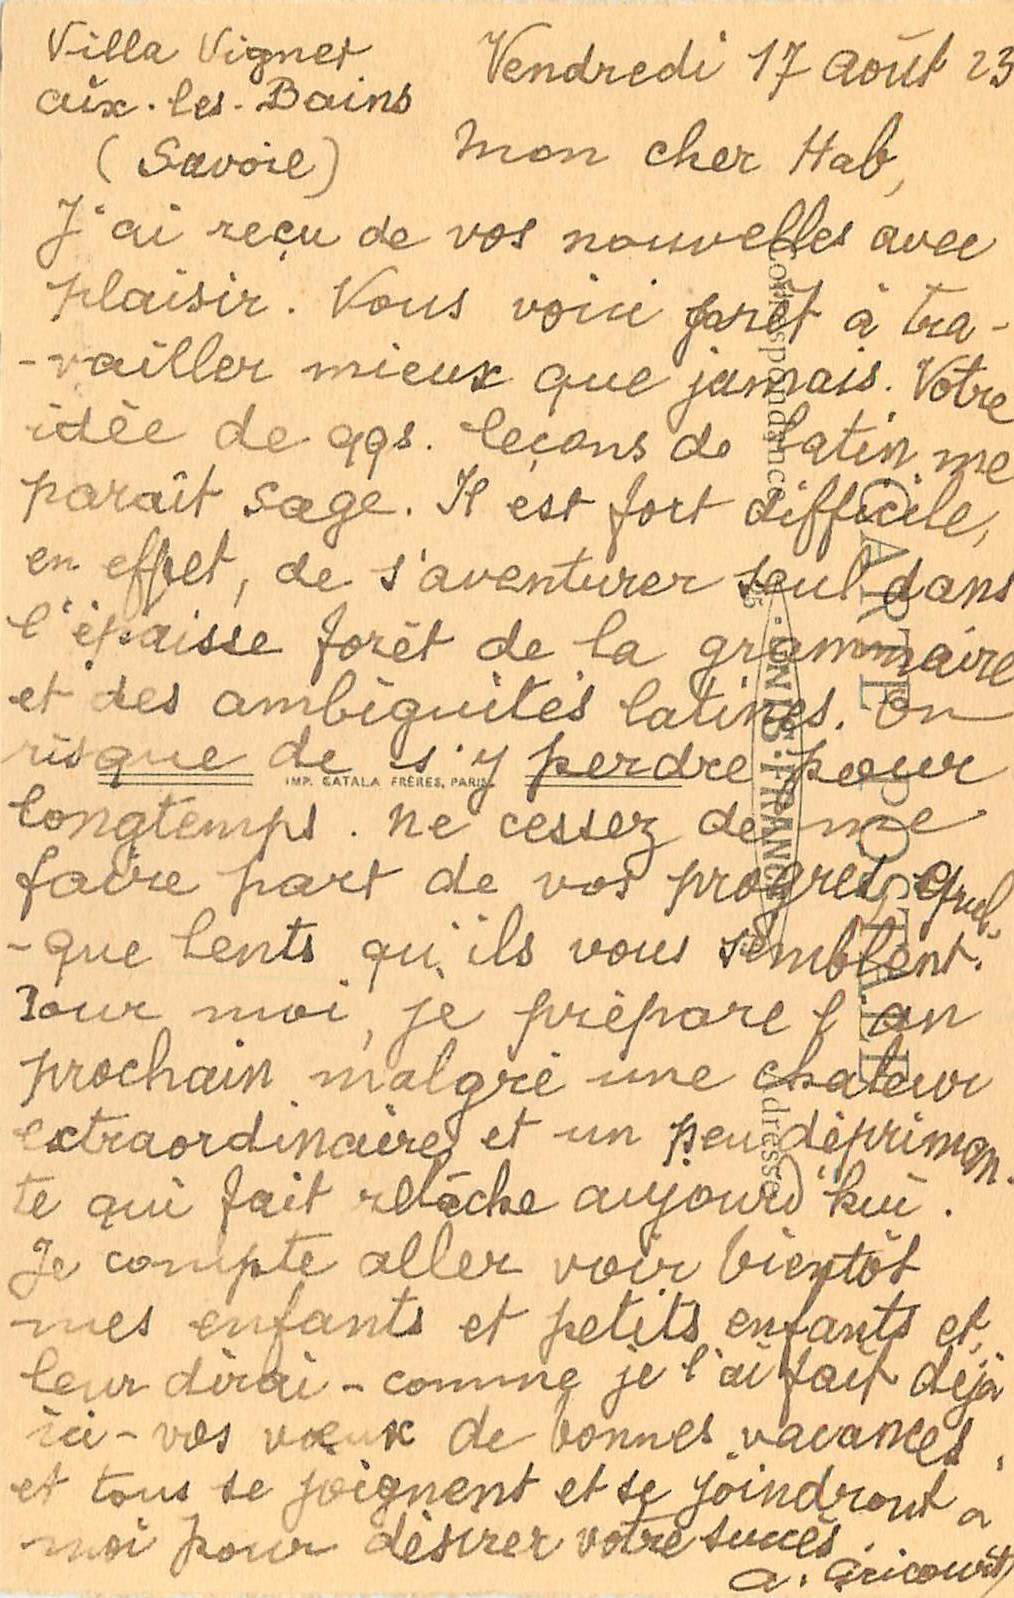 Villa Vignet
Aix-les-Bains
(Savoie)
Vendredi 17 Août 23
Mon cher Hab,
J'ai reçu de vos nouvelles avec
plaisir. Vous voici prêt à tra-
-vailler mieux que jamais. Votre
idée de qqs. leçons de latin me
paraît sage. Il est fort difficile,
en effet, de s'aventurer seul dans
l'épaisse forêt de la grammaire
et des ambiguités latines. On
risque de s'y perdre pour
longtemps. Ne cessez de me
faire part de vos progrès quel-
-que lents qu'ils vous semblent.
Pour moi, je prépare l'an
prochain malgré une chaleur
extraordinaire et un peu dépriman-
te qui fait relâche aujourd'hui.
Je compte aller voir bientôt
mes enfants et petits enfants et
leur dirai - comme je l'ai fait déjà
ici - vos vœux de bonnes vacances,
et tous se joignent et se joindront à
moi pour désirer votre succès.
A. Gricourt
Correspondance
CARTE POSTALE
Adresse
IMP. CATALA FRÈRES, PARIS